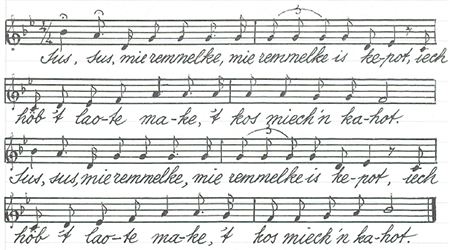 Sus, sus, mie remmelke, mie remmelke is ke-pot, iech
hob 't lao-te ma-ke, 't kos miech 'n ka-hot.
Sus, sus, mie remmelke, mie remmelke is ke-pot, iech
hob 't lao-te ma-ke, 't kos miech 'n ka-hot.